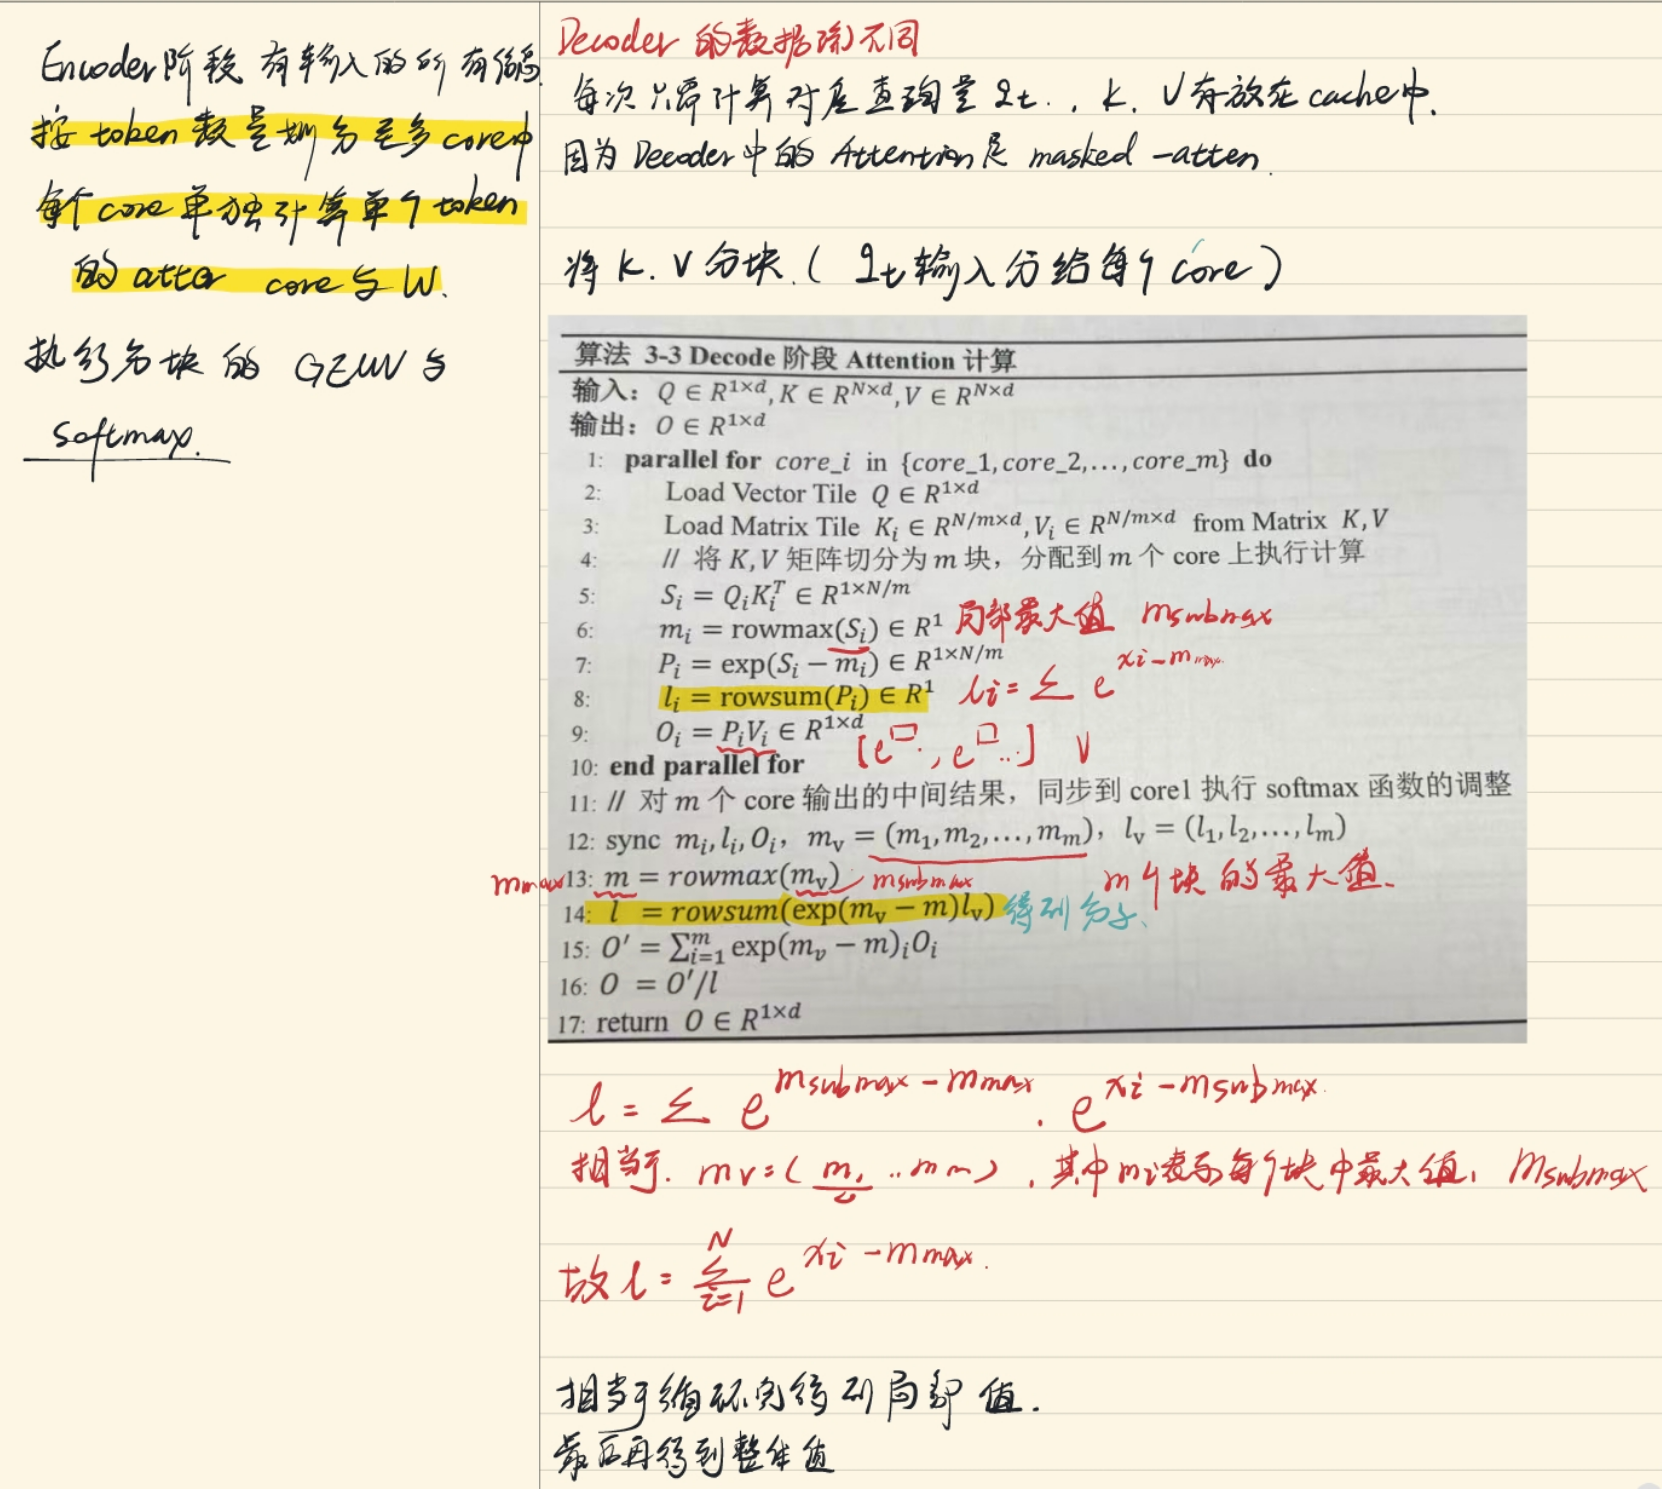 Encoder阶段 有输入的所有信息
按 token 数量划分至多core中
每个core单独计算单个token
的atten core与W.
执行分块的 GEMV 与
softmax.
Decoder 的数据流不同
每次只需计算对应查询量 qt., K, V存放在cache中.
因为Decoder中的 Attention是 masked -atten.
将K.V分块.( qt输入分给每个core)
算法 3-3 Decode 阶段 Attention 计算
输入: Q ∈ R^{1×d}, K ∈ R^{N×d}, V ∈ R^{N×d}
输出: O ∈ R^{1×d}
1: parallel for core_i in {core_1, core_2, ..., core_m} do
2: Load Vector Tile Q ∈ R^{1×d}
3: Load Matrix Tile K_i ∈ R^{N/m×d}, V_i ∈ R^{N/m×d} from Matrix K, V
4: // 将 K, V 矩阵切分为 m 块，分配到 m 个 core 上执行计算
5: S_i = Q_i K_i^T ∈ R^{1×N/m}
6: m_i = rowmax(S_i) ∈ R^1 局部最大值 msubmax
7: P_i = exp(S_i − m_i) ∈ R^{1×N/m}
8: l_i = rowsum(P_i) ∈ R^1 li = Σ e^{xi−mmax}
9: O_i = P_i V_i ∈ R^{1×d} [e^□, e^□..] V
10: end parallel for
11: // 对 m 个 core 输出的中间结果，同步到 core1 执行 softmax 函数的调整
12: sync m_i, l_i, O_i, m_v = (m_1, m_2, ..., m_m), l_v = (l_1, l_2, ..., l_m)
mmax 13: m = rowmax(m_v) msubmax m个块的最大值.
14: l = rowsum(exp(m_v − m)l_v) 得到分子.
15: O' = Σ_{i=1}^m exp(m_v − m)_i O_i
16: O = O'/l
17: return O ∈ R^{1×d}
l = Σ e^{msubmax − mmax} · e^{xi − msubmax}
相当于. mv=(m1 ..mm), 其中mi表示每个块中最大值, msubmax
故 l = Σ_{i=1}^N e^{xi − mmax}.
相当于循环先得到局部值.
最后再得到整体值